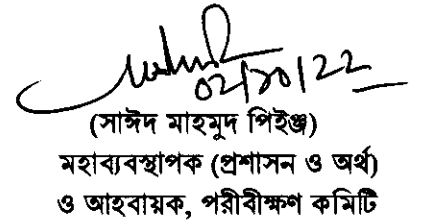 02/10/22
(সাঈদ মাহমুদ পিইঞ্জ)
মহাব্যবস্থাপক (প্রশাসন ও অর্থ)
ও আহবায়ক, পরীবীক্ষণ কমিটি